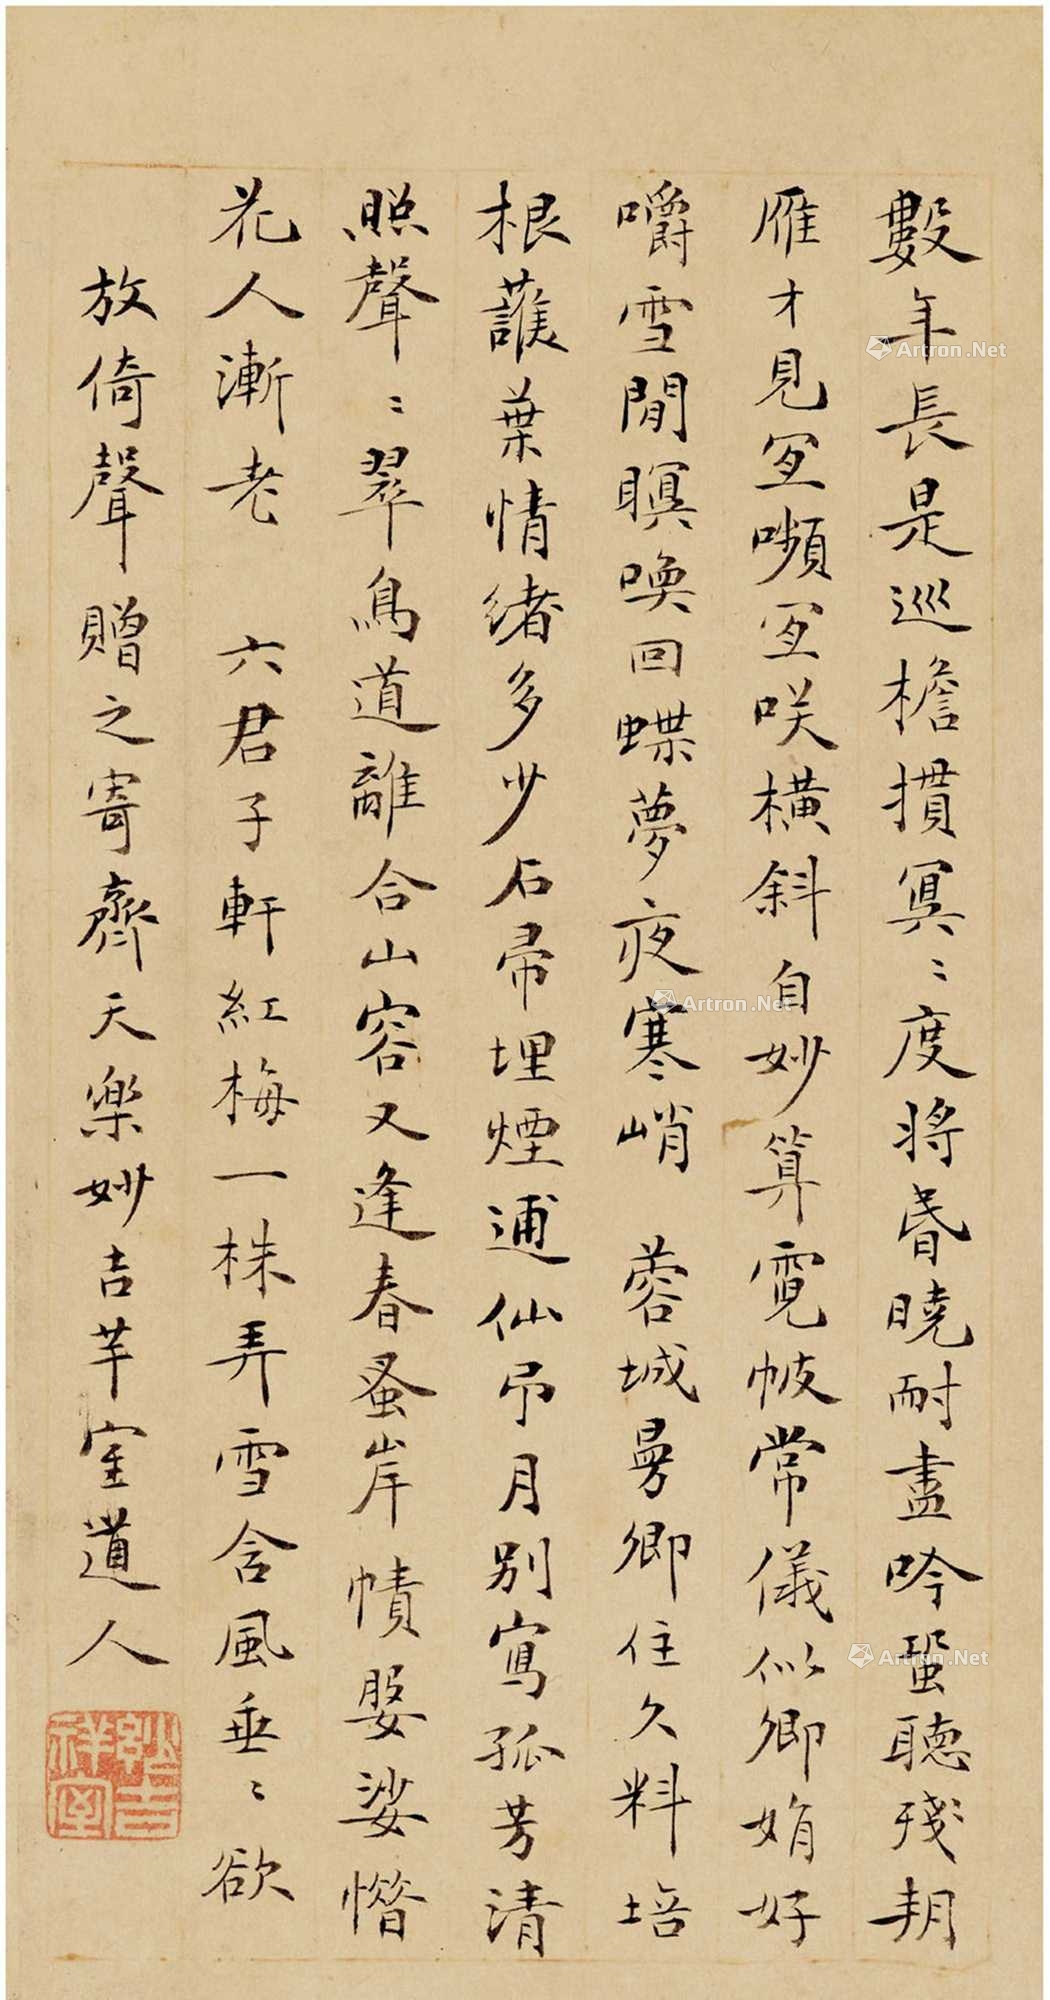 數年長是巡檐摜冥〻度將昏曉耐盡吟蛩聽殘朔
雁才見宜嚬宜咲橫斜自妙算霓帔常儀似卿娟好
嚼雪閒瞑喚回蝶夢夜寒峭 蓉城曼卿住久料培
根護葉情緒多少石帚埋煙逋仙弔月別寫孤芳清
照聲〻翠鳥道離合山容又逢春蚤岸幘婆娑憯
花人漸老 六君子軒紅梅一株弄雪含風垂〻欲
放倚聲贈之寄齊天樂妙吉羊室道人
妙吉祥室
Artron.Net
Artron.Net
Artron.Net